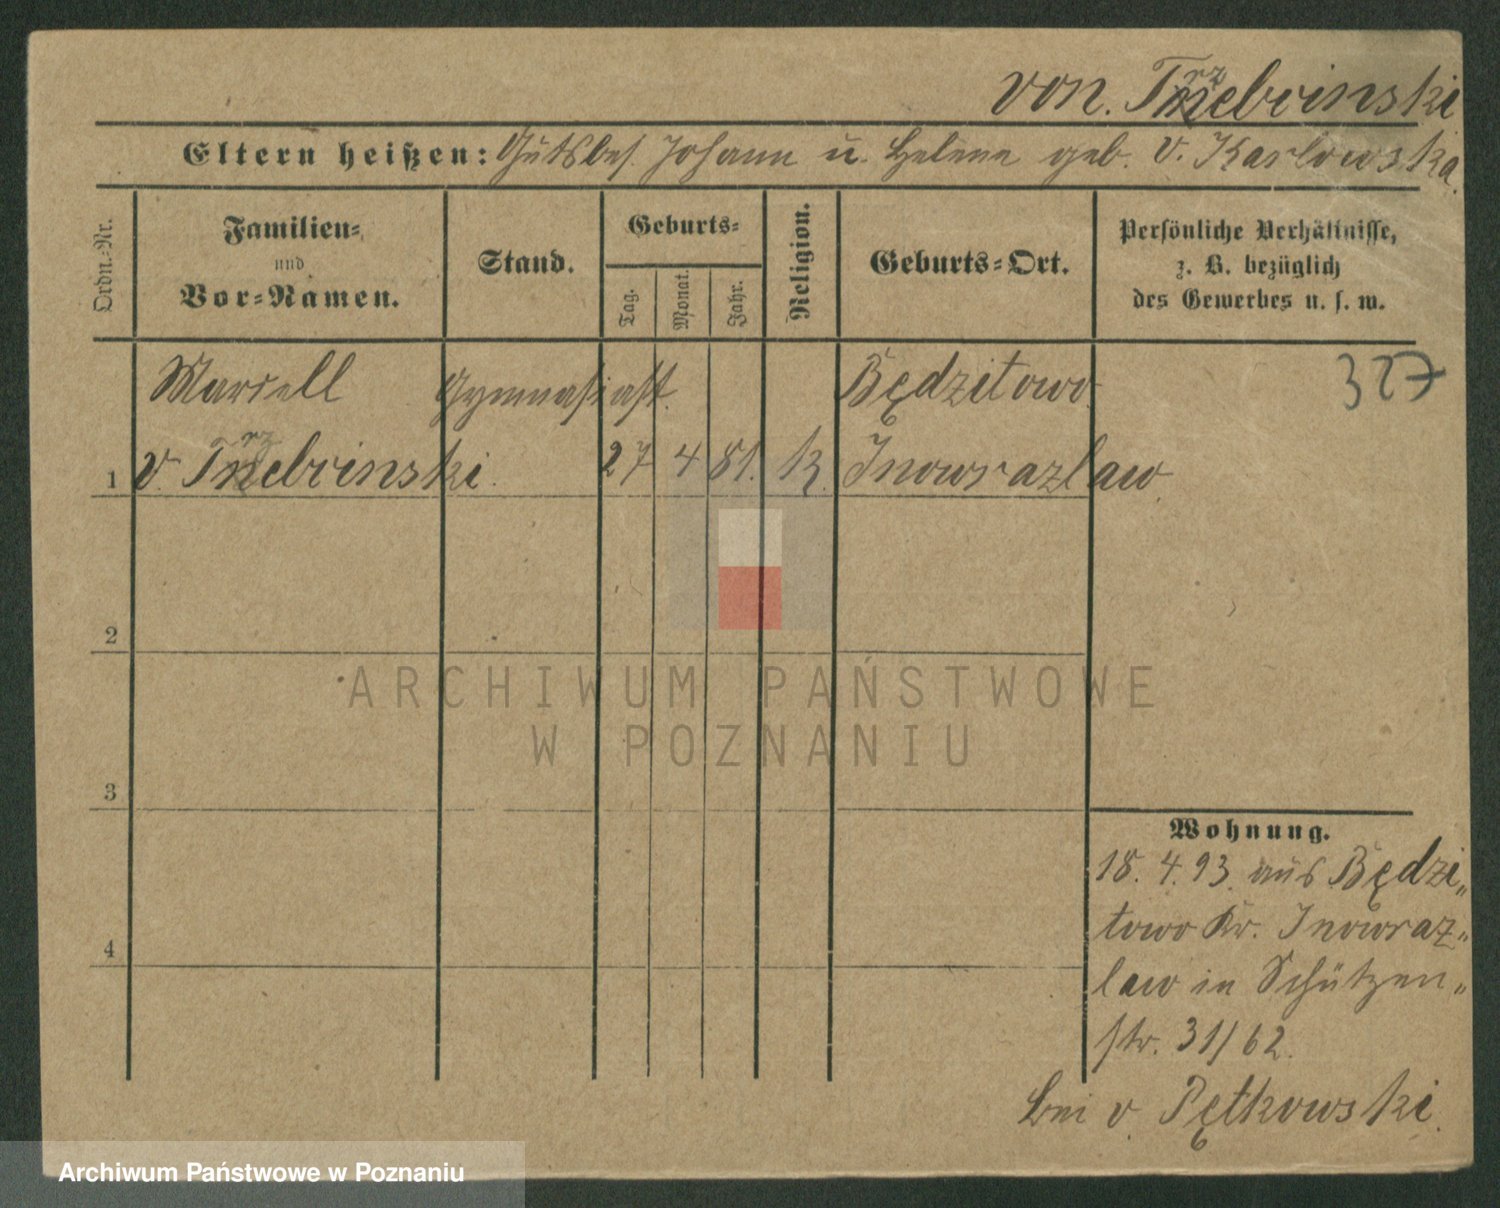 von Trzebinski
Eltern heißen: Gutsbes. Johann u. Helene geb. v. Karlowska.
Ordn.-Nr.
Familien-
und
Vor-Namen.
Stand.
Geburts-
Tag.
Monat.
Jahr.
Religion.
Geburts-Ort.
Persönliche Verhältnisse,
z. B. bezüglich
des Gewerbes u. s. w.
Marcell Gymnasiast. Będzitowo 327
1 v. Trzebinski. 27 4 81. k. Inowrazlaw
2
3
4
Wohnung.
18. 4. 93. aus Będzi„
towo Kr. Inowraz„
law in Schützen„
str. 31/62.
bei v. Pętkowski.
ARCHIWUM PAŃSTWOWE
W POZNANIU
Archiwum Państwowe w Poznaniu